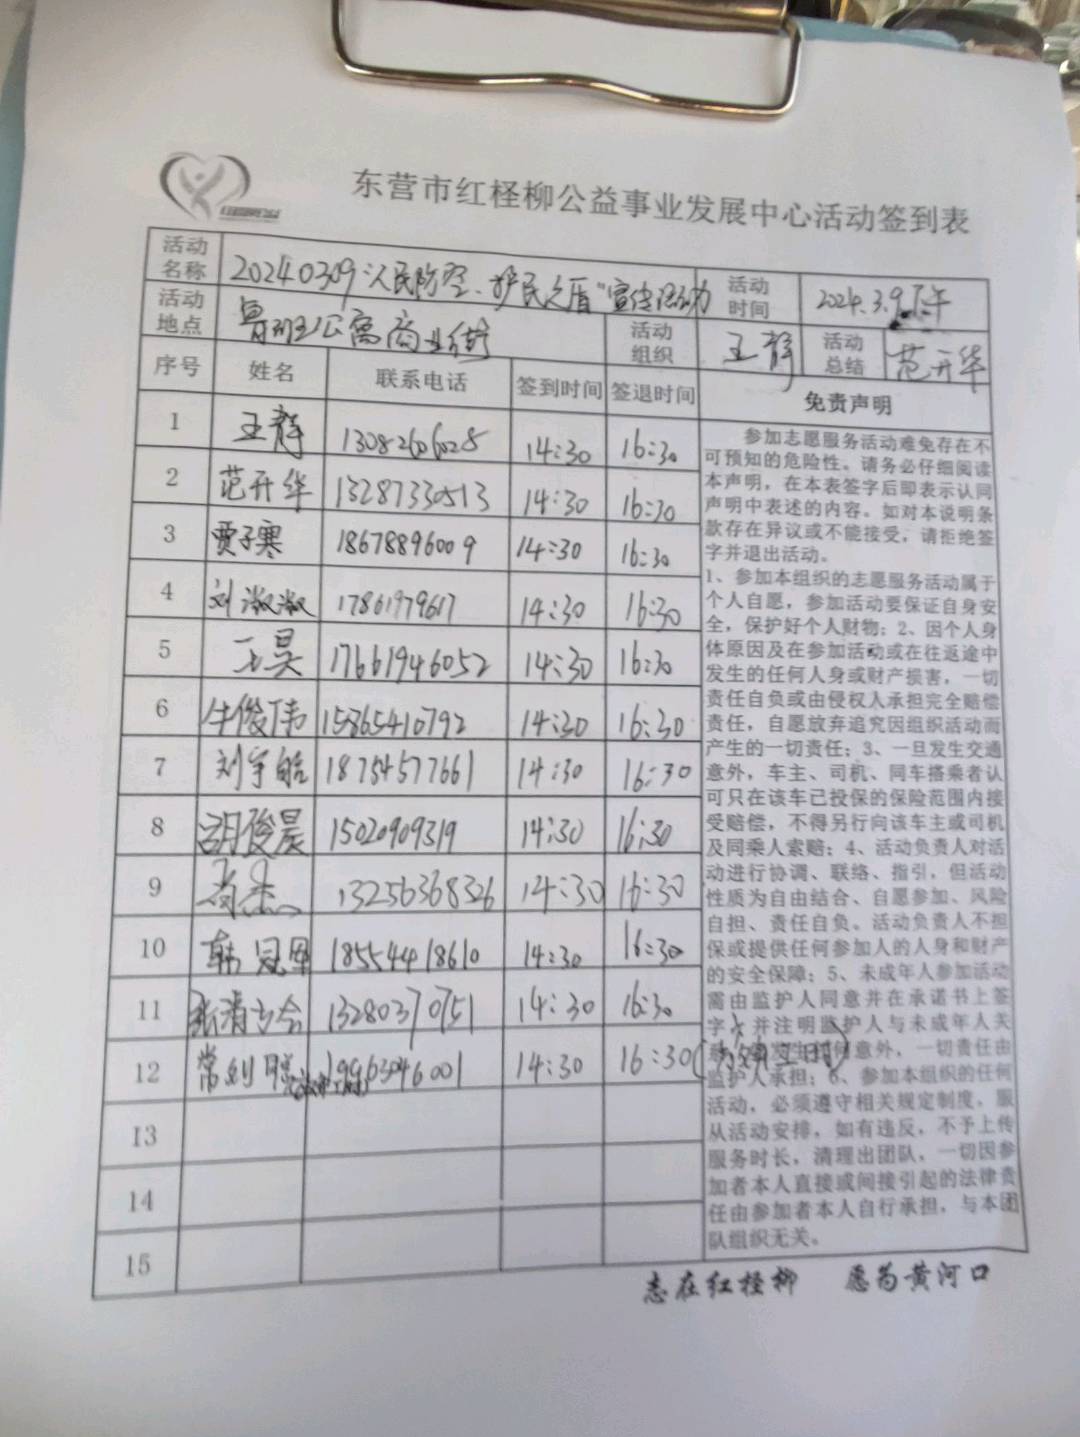 东营市红柽柳公益事业发展中心活动签到表
活动名称 20240309"人民防空、护民之盾"宣传活动 活动时间 2024.3.9下午
活动地点 鲁班公寓商业街 活动组织 王静 活动总结 范开华
序号 姓名 联系电话 签到时间 签退时间 免责声明
1 王静 13082606028 14:30 16:30
2 范开华 13287330513 14:30 16:30
3 贾子寒 18678896009 14:30 16:30
4 刘淑淑 17861979617 14:30 16:30
5 王昊 17661946052 14:30 16:30
6 牛俊伟 15865410792 14:30 16:30
7 刘宇皓 18754577661 14:30 16:30
8 胡俊晨 15020909319 14:30 16:30
9 13256368326 14:30 16:30
10 韩冠军 18554418610 14:30 16:30
11 张清 13280370751 14:30 16:30
12 常 19963046001 14:30 16:30
13
14
15
参加志愿服务活动难免存在不
可预知的危险性。请务必仔细阅读
本声明，在本表签字后即表示认同
声明中表述的内容。如对本说明条
款存在异议或不能接受，请拒绝签
字并退出活动。
1、参加本组织的志愿服务活动属于
个人自愿，参加活动要保证自身安
全，保护好个人财物；2、因个人身
体原因及在参加活动或在往返途中
发生的任何人身或财产损害，一切
责任自负或由侵权人承担完全赔偿
责任，自愿放弃追究因组织活动而
产生的一切责任；3、一旦发生交通
意外，车主、司机、同车搭乘者认
可只在该车已投保的保险范围内接
受赔偿，不得另行向该车主或司机
及同乘人索赔；4、活动负责人对活
动进行协调、联络、指引，但活动
性质为自由结合、自愿参加、风险
自担、责任自负。活动负责人不担
保或提供任何参加人的人身和财产
的安全保障；5、未成年人参加活动
需由监护人同意并在承诺书上签
字，并注明监护人与未成年人关
发生 意外，一切责任由
监护人承担；6、参加本组织的任何
活动，必须遵守相关规定制度，服
从活动安排，如有违反，不予上传
服务时长，清理出团队，一切因参
加者本人直接或间接引起的法律责
任由参加者本人自行承担，与本团
队组织无关。
志在红柽柳 愿为黄河口